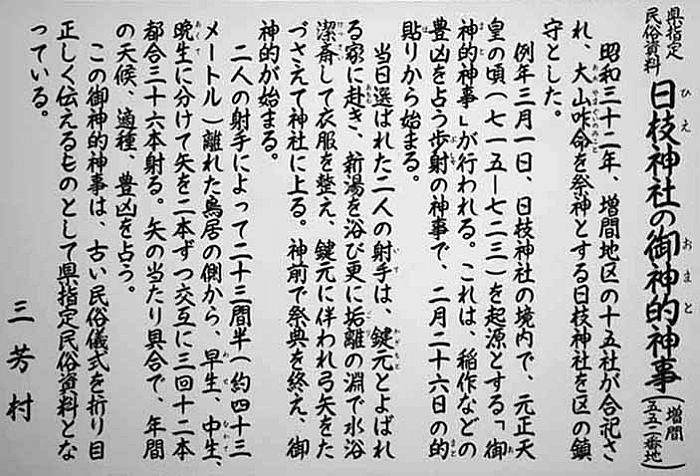 県指定
民俗資料
日枝神社の御神的神事
(増間
五五二番地)
昭和三十二年、増間地区の十五社が合祀さ
れ、大山咋命を祭神とする日枝神社を区の鎮
守とした。
例年三月一日、日枝神社の境内で、元正天
皇の頃(七一五ー七二三)を起源とする「御
神的神事」が行われる。これは、稲作などの
豊凶を占う歩射の神事で、二月二十六日の的
貼りから始まる。
当日選ばれた二人の射手は、鍵元とよばれ
る家に赴き、新湯を浴び更に垢離の淵で水浴
潔斎して衣服を整え、鍵元に伴われ弓矢をた
づさえて神社に上る。神前で祭典を終え、御
神的が始まる。
二人の射手によって二十三間半(約四十三
メートル)離れた鳥居の側から、早生、中生、
晩生に分けて矢を二本ずつ交互に三回十二本
都合三十六本射る。矢の当たり具合で、年間
の天候、適種、豊凶を占う。
この御神的神事は、古い民俗儀式を折り目
正しく伝えるものとして県指定民俗資料とな
っている。
三芳村